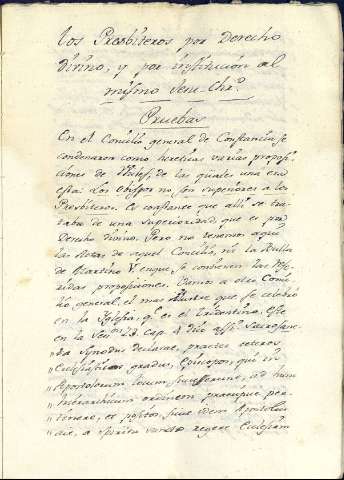 los Presbiteros por Derecho
divino, y por institucion del
mismo Jesu Chr.º
Pruebas
En el Concilio general de Constancia se
condenaron como heregias varias proposi-
ciones de de las quales una era
esta: Los Obispos no son superiores a los
Presbiteros. Es constante que alli se tra-
taba de una superioridad, que es por
Derecho divino. Pero no tenemos aqui
las Actas de aquel Concilio, ni la Bulla
de Martino V. en que se contienen las
proposiciones. Vamos a otro Conci-
lio general, el mas ilustre que se celebró
en la Yglesia, q.e es el Tridentino. Este
en la Ses.n 23. Cap. 4. dice Sacrosanc-
ta Synodus declarat, praeter ceteros
Ecclesiasticos gradus, Episcopos, qui in
Apostolorum locum successerunt, ad hunc
hierarchicum ordinem praecipue per-
tinere, et positos, sicut idem Apostolus
ait, a Spiritu Sancto regere Ecclesiam